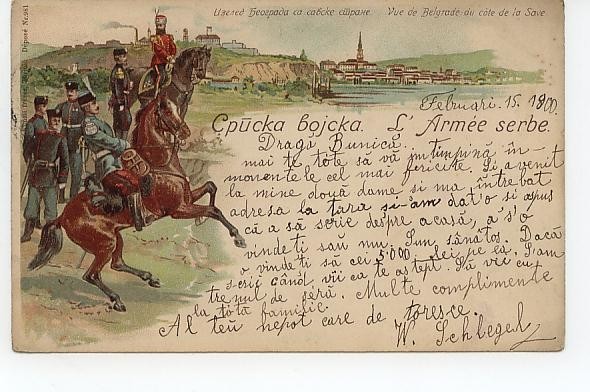 Изглед Београда са савске стране. Vue de Belgrade du côte de la Save
Februari. 15. 1900.
Српска војска. L' Armée serbe.
Draga Bunică
mai te tóte să vă intimpină în-
momentele cel mai fericite. Si a venit
la mine două dame si ma întrebat
adresa la tara si-am dat'o si a spus
că a să serie despre acasă, a s'o
vinde ti sau nu. Sun sănătos. Dacă
o vinde ti să cei 5'000 lei pe ea. S'am
scric când vii ca te astept. Să vii cu
trenul de seră. Multe complimente
la tótă familie.
Al teŭ nepot care de toresce.
W. Schlegel